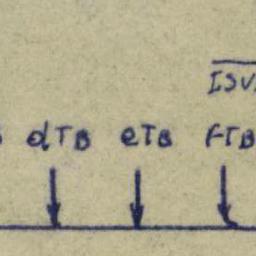 ISV
dTB eTB fTB